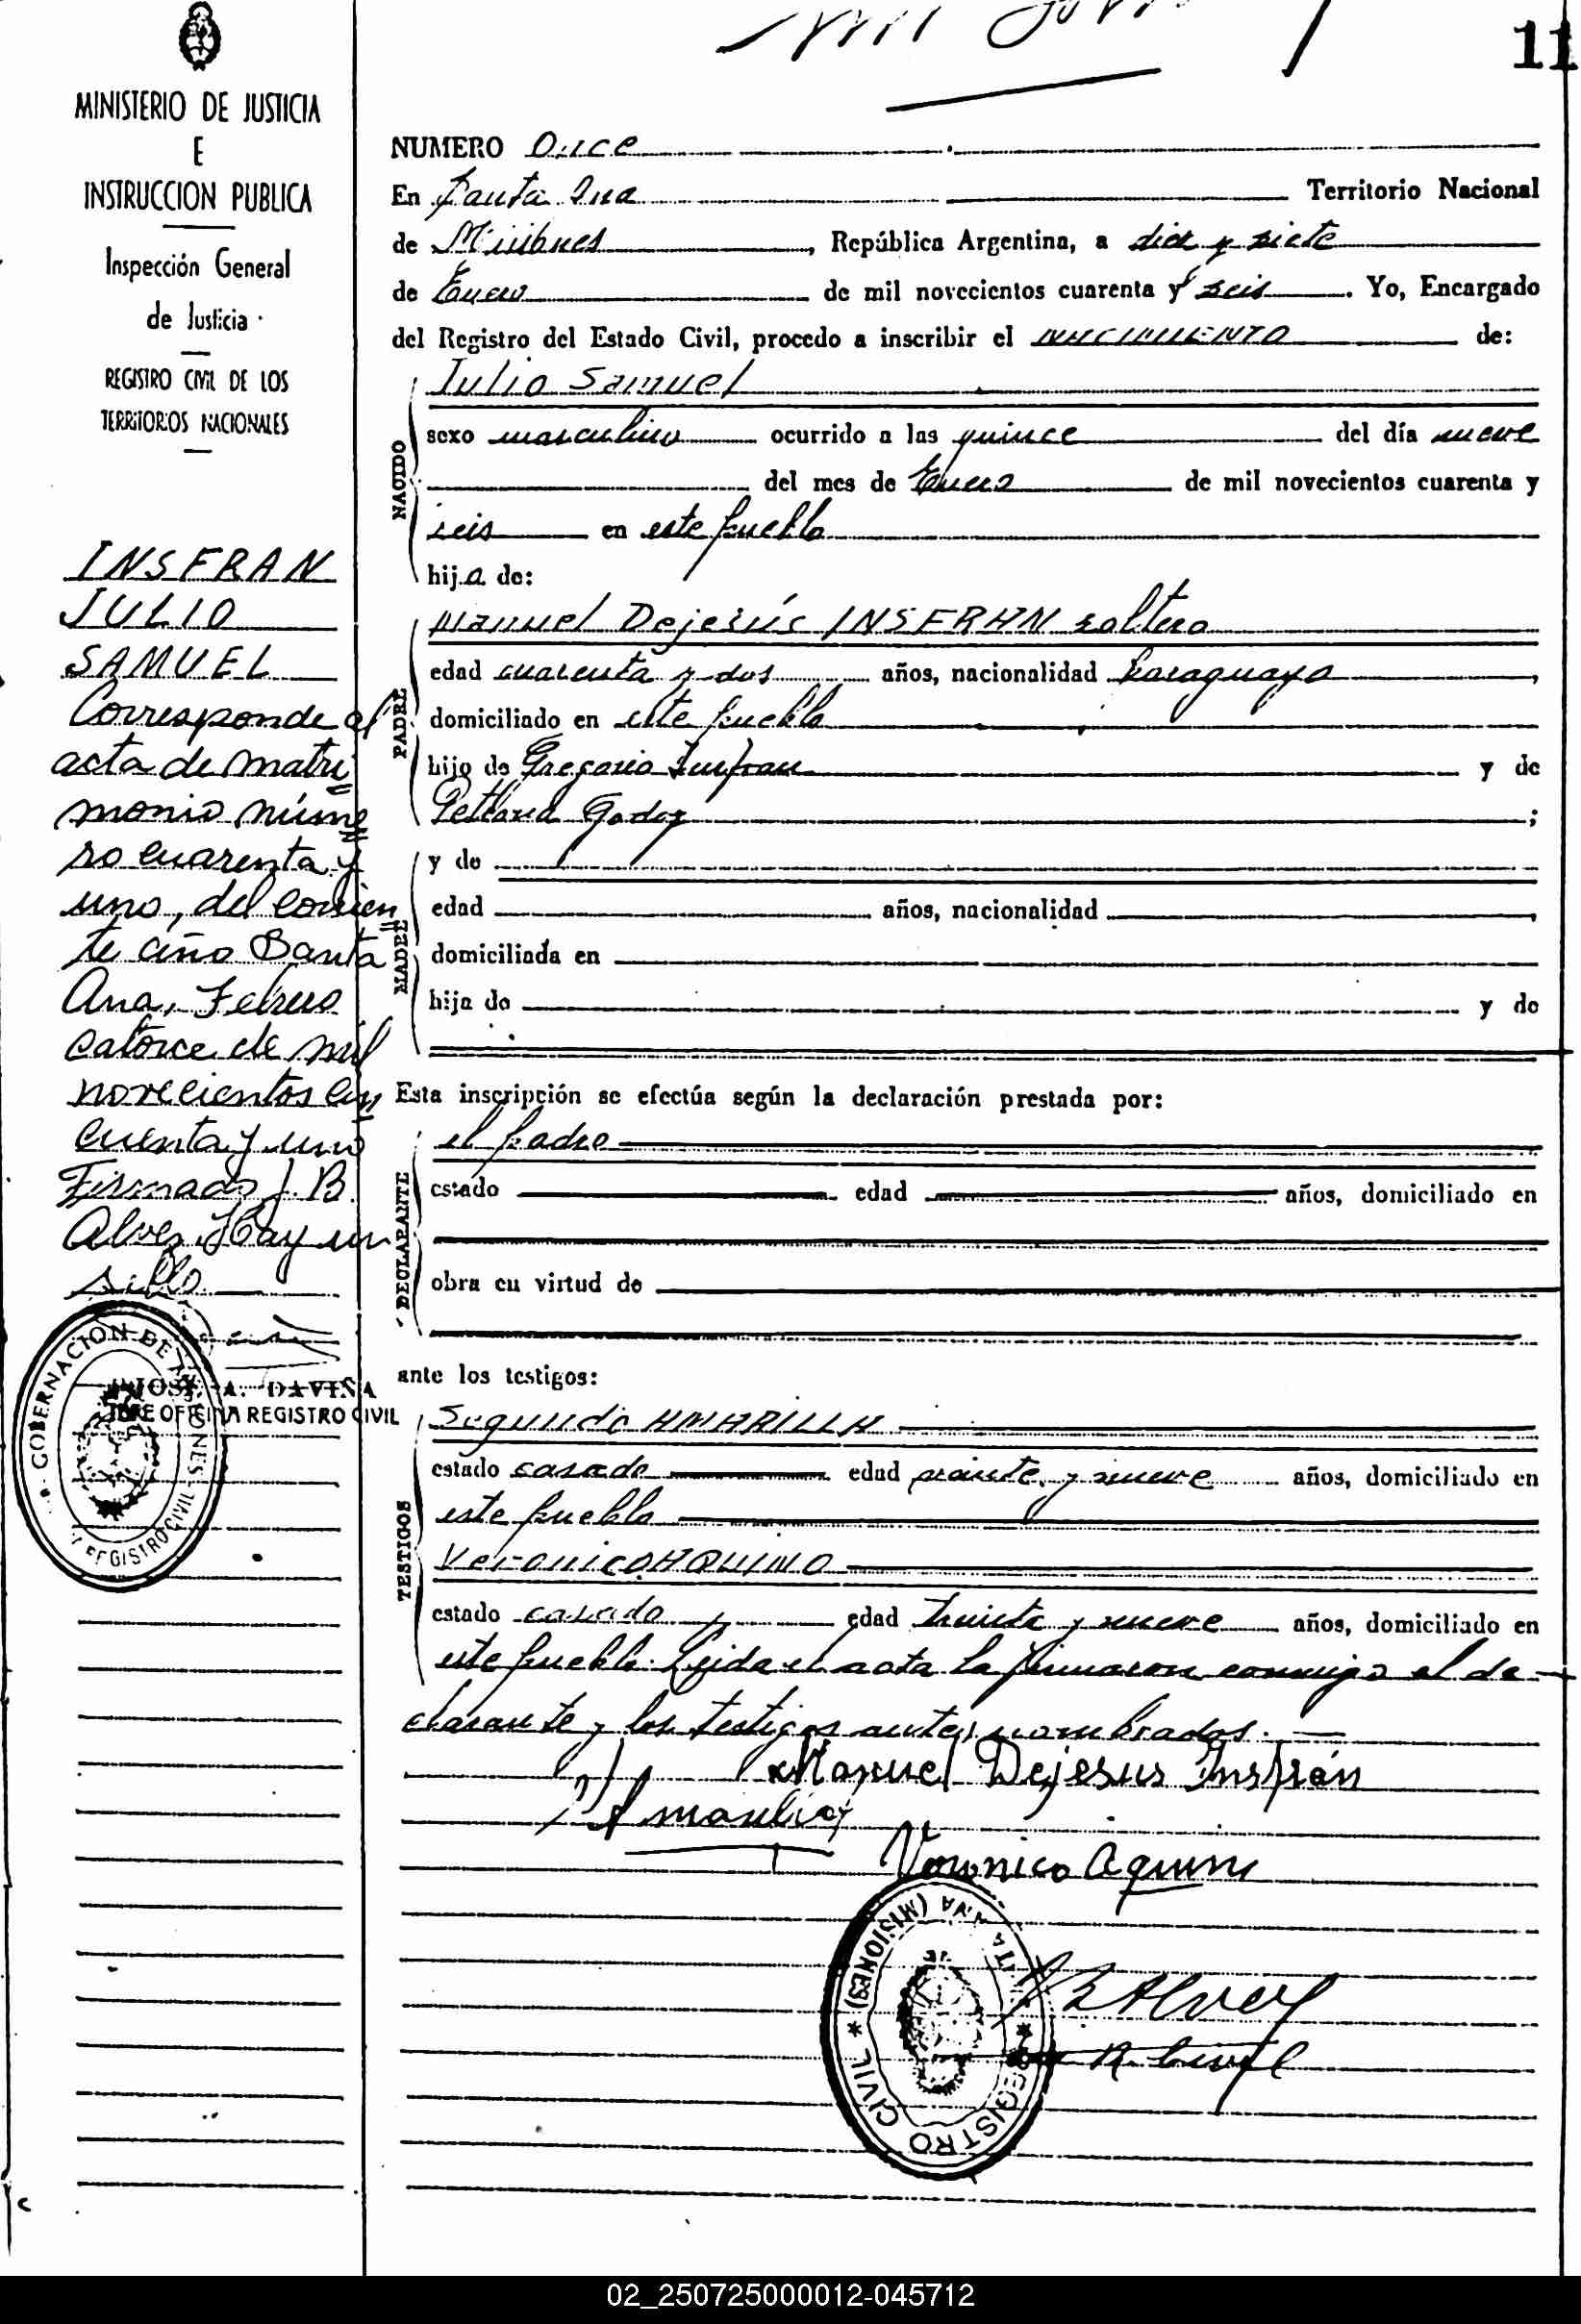 11
MINISTERIO DE JUSTICIA
E
INSTRUCCION PUBLICA
Inspección General
de Justicia
REGISTRO CIVIL DE LOS
TERRITORIOS NACIONALES
INSFRAN
JULIO
SAMUEL
Corresponde al
acta de matri
monio núme
ro cuarenta y
uno, del corrien
te año Santa
Ana, Febrero
catorce de mil
novecientos cin
cuenta y uno
Firmado J. B.
Alves Hay un
sello
JOSE A. DAVIÑA
JEFE OFICINA REGISTRO CIVIL
GOBERNACION DE MISIONES
REGISTRO CIVIL
NUMERO Once
En Santa Ana Territorio Nacional
de Misiones, República Argentina, a diez y siete
de Enero de mil novecientos cuarenta y seis. Yo, Encargado
del Registro del Estado Civil, procedo a inscribir el NACIMIENTO de:
NACIDO
Julio Samuel
sexo masculino ocurrido a las quince del día nueve
del mes de Enero de mil novecientos cuarenta y
seis en este pueblo
hijo de:
PADRE
Manuel Dejesús INSFRAN soltero
edad cuarenta y dos años, nacionalidad paraguayo,
domiciliado en este pueblo
hijo de Gregorio Insfran y de
Godoy;
MADRE
y de
edad años, nacionalidad,
domiciliada en
hija de y de
Esta inscripción se efectúa según la declaración prestada por:
DECLARANTE
el padre
estado edad años, domiciliado en
obra en virtud de
ante los testigos:
TESTIGOS
Segundo AMARILLA
estado casado edad y nueve años, domiciliado en
este pueblo
Veronico AQUINO
estado casado edad treinta y nueve años, domiciliado en
este pueblo. Leida el acta la firmaron conmigo el de-
clarante y los testigos antes nombrados.
Manuel Dejesus Insfrán
Amarilla
Veronico Aquino
REGISTRO CIVIL * SANTA ANA (MISIONES) *
J B Alves
R. Civil
02_250725000012-045712